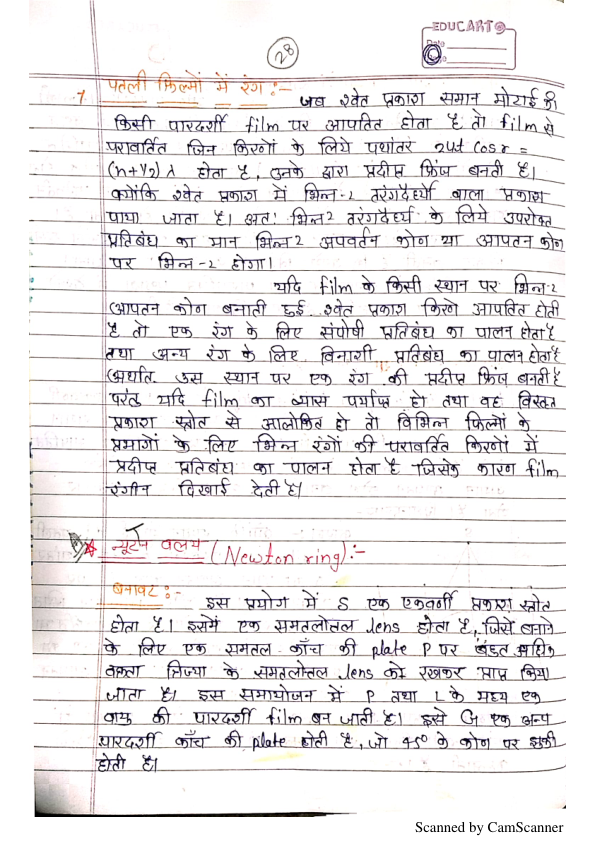 EDUCART
28
7. पतली फिल्मों में रंग :-
जब श्वेत प्रकाश समान मोटाई की
किसी पारदर्शी film पर आपतित होता है तो film से
परावर्तित जिन किरणों के लिये पथांतर 2ut Cos r =
(n+1/2) λ होता है, उनके द्वारा प्रदीप्त फ्रिंज बनती है।
क्योंकि श्वेत प्रकाश में भिन्न-2 तरंगदैर्ध्यो वाला प्रकाश
पाया जाता है। अतः भिन्न2 तरंगदैर्ध्य के लिये उपरोक्त
प्रतिबंध का मान भिन्न2 अपवर्तन कोण या आपतन कोण
पर भिन्न-2 होगा।
यदि film के किसी स्थान पर भिन्न-2
आपतन कोण बनाती हुई श्वेत प्रकाश किरणे आपतित होती
है तो एक रंग के लिए संपोषी प्रतिबंध का पालन होता है
तथा अन्य रंग के लिए विनाशी प्रतिबंध का पालन होता है
अर्थात उस स्थान पर एक रंग की प्रदीप्त फ्रिंज बनती है
परंतु यदि film का व्यास पर्याप्त हो तथा वह विस्तृत
प्रकाश स्त्रोत से आलोकित हो तो विभिन्न फिल्मों के
प्रभागों के लिए भिन्न रंगों की परावर्तित किरणों में
प्रदीप्त प्रतिबंध का पालन होता है जिसके कारण film
रंगीन दिखाई देती है।
न्यूटन वलय (Newton ring):-
बनावट :-
इस प्रयोग में S एक एकवर्णी प्रकाश स्त्रोत
होता है। इसमें एक समतलोत्तल lens होता है, जिसे बनाने
के लिए एक समतल काँच की plate P पर बहुत अधिक
वक्रता त्रिज्या के समतलोत्तल lens को रखकर प्राप्त किया
जाता है। इस समायोजन में P तथा L के मध्य एक
वायु की पारदर्शी film बन जाती है। इसे G एक अन्य
पारदर्शी काँच की plate होती है, जो 45° के कोण पर झुकी
होती है।
Scanned by CamScanner